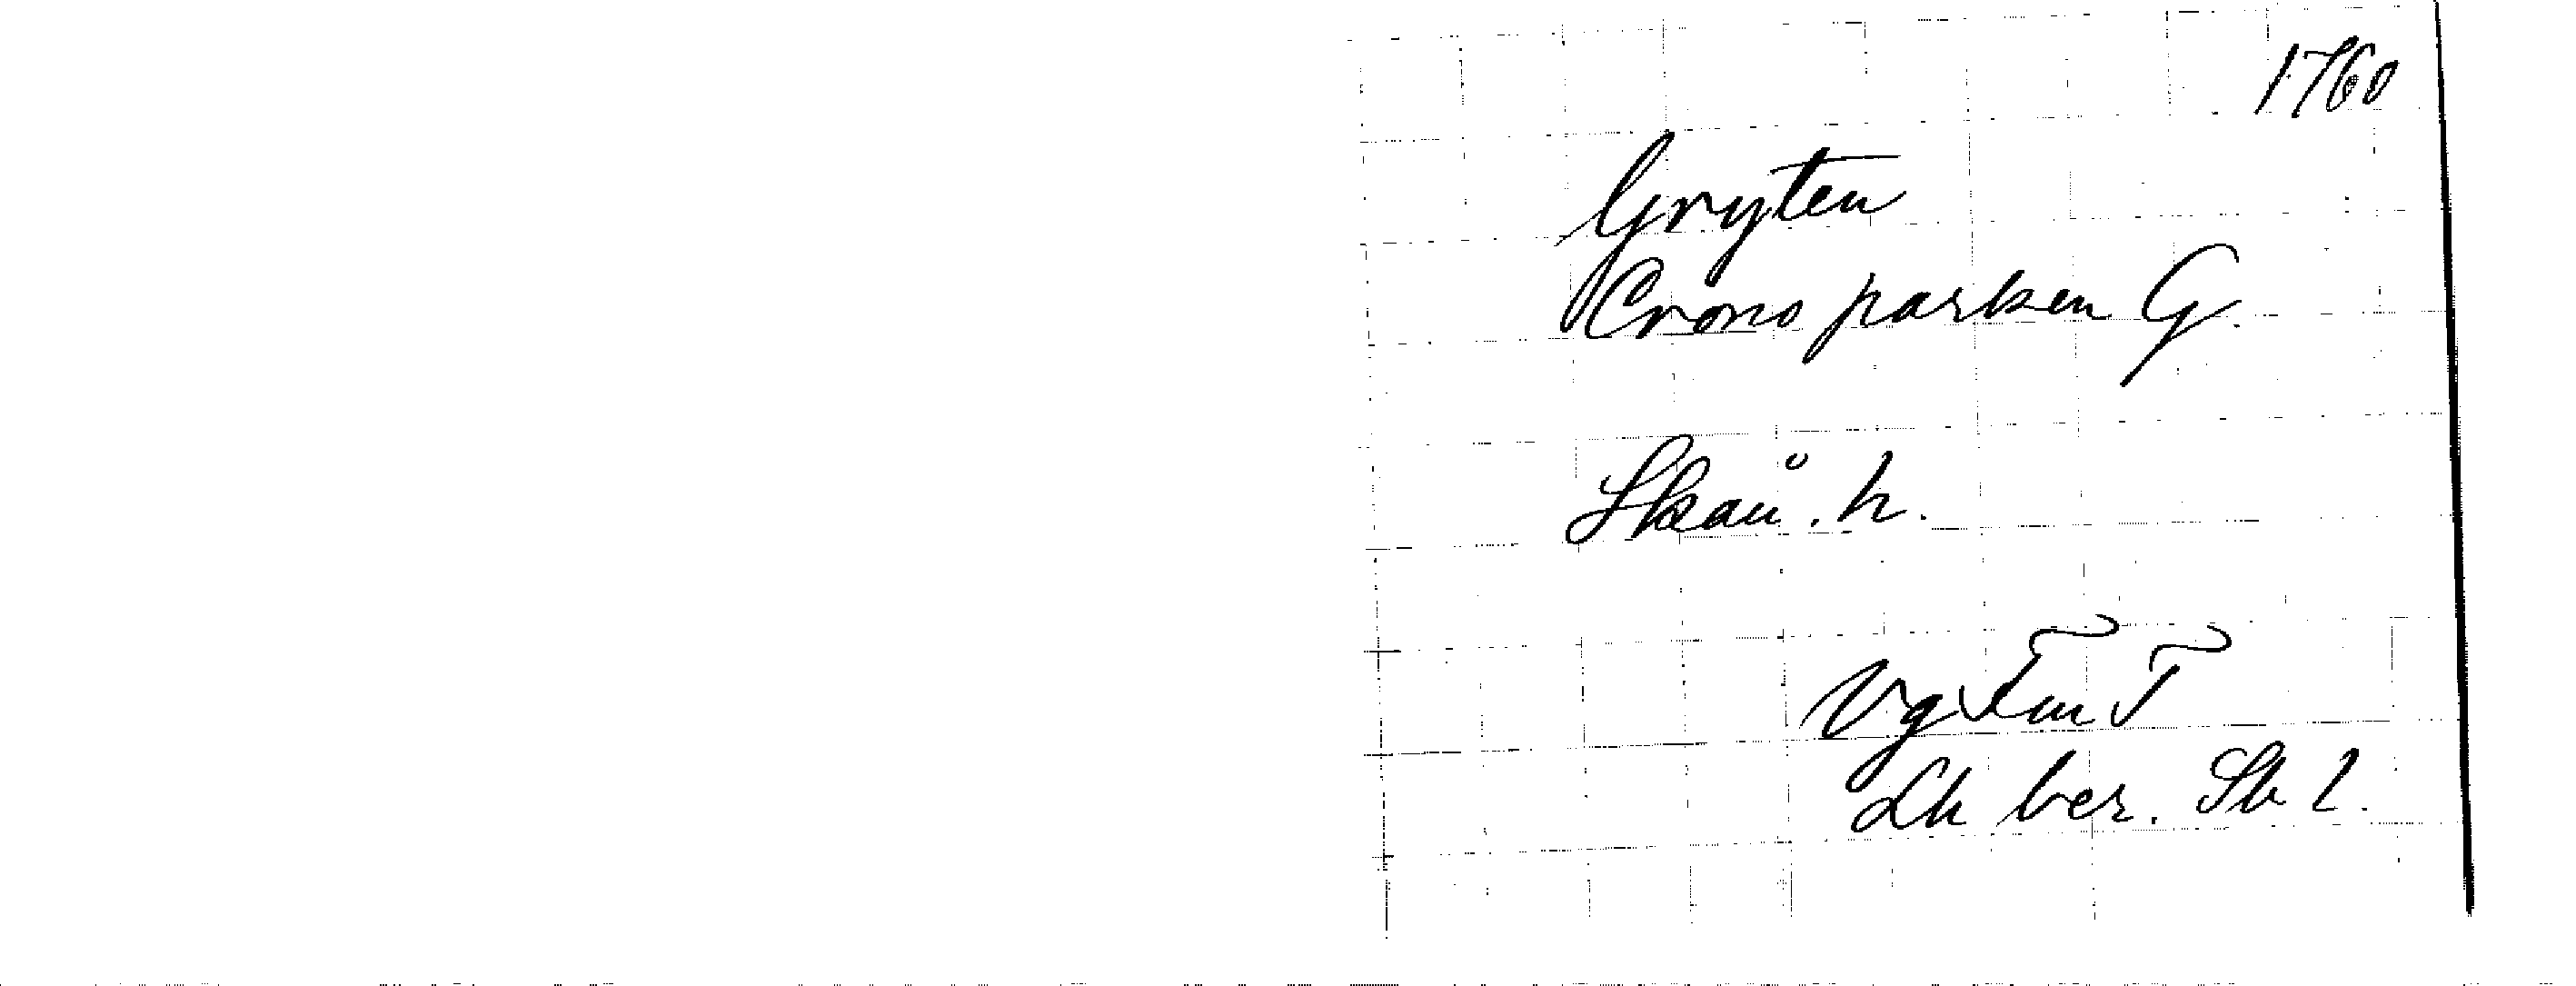 1760
Gryten
Crono parken G.
Skån. h.
Vg
Lh ber. Sk 1.